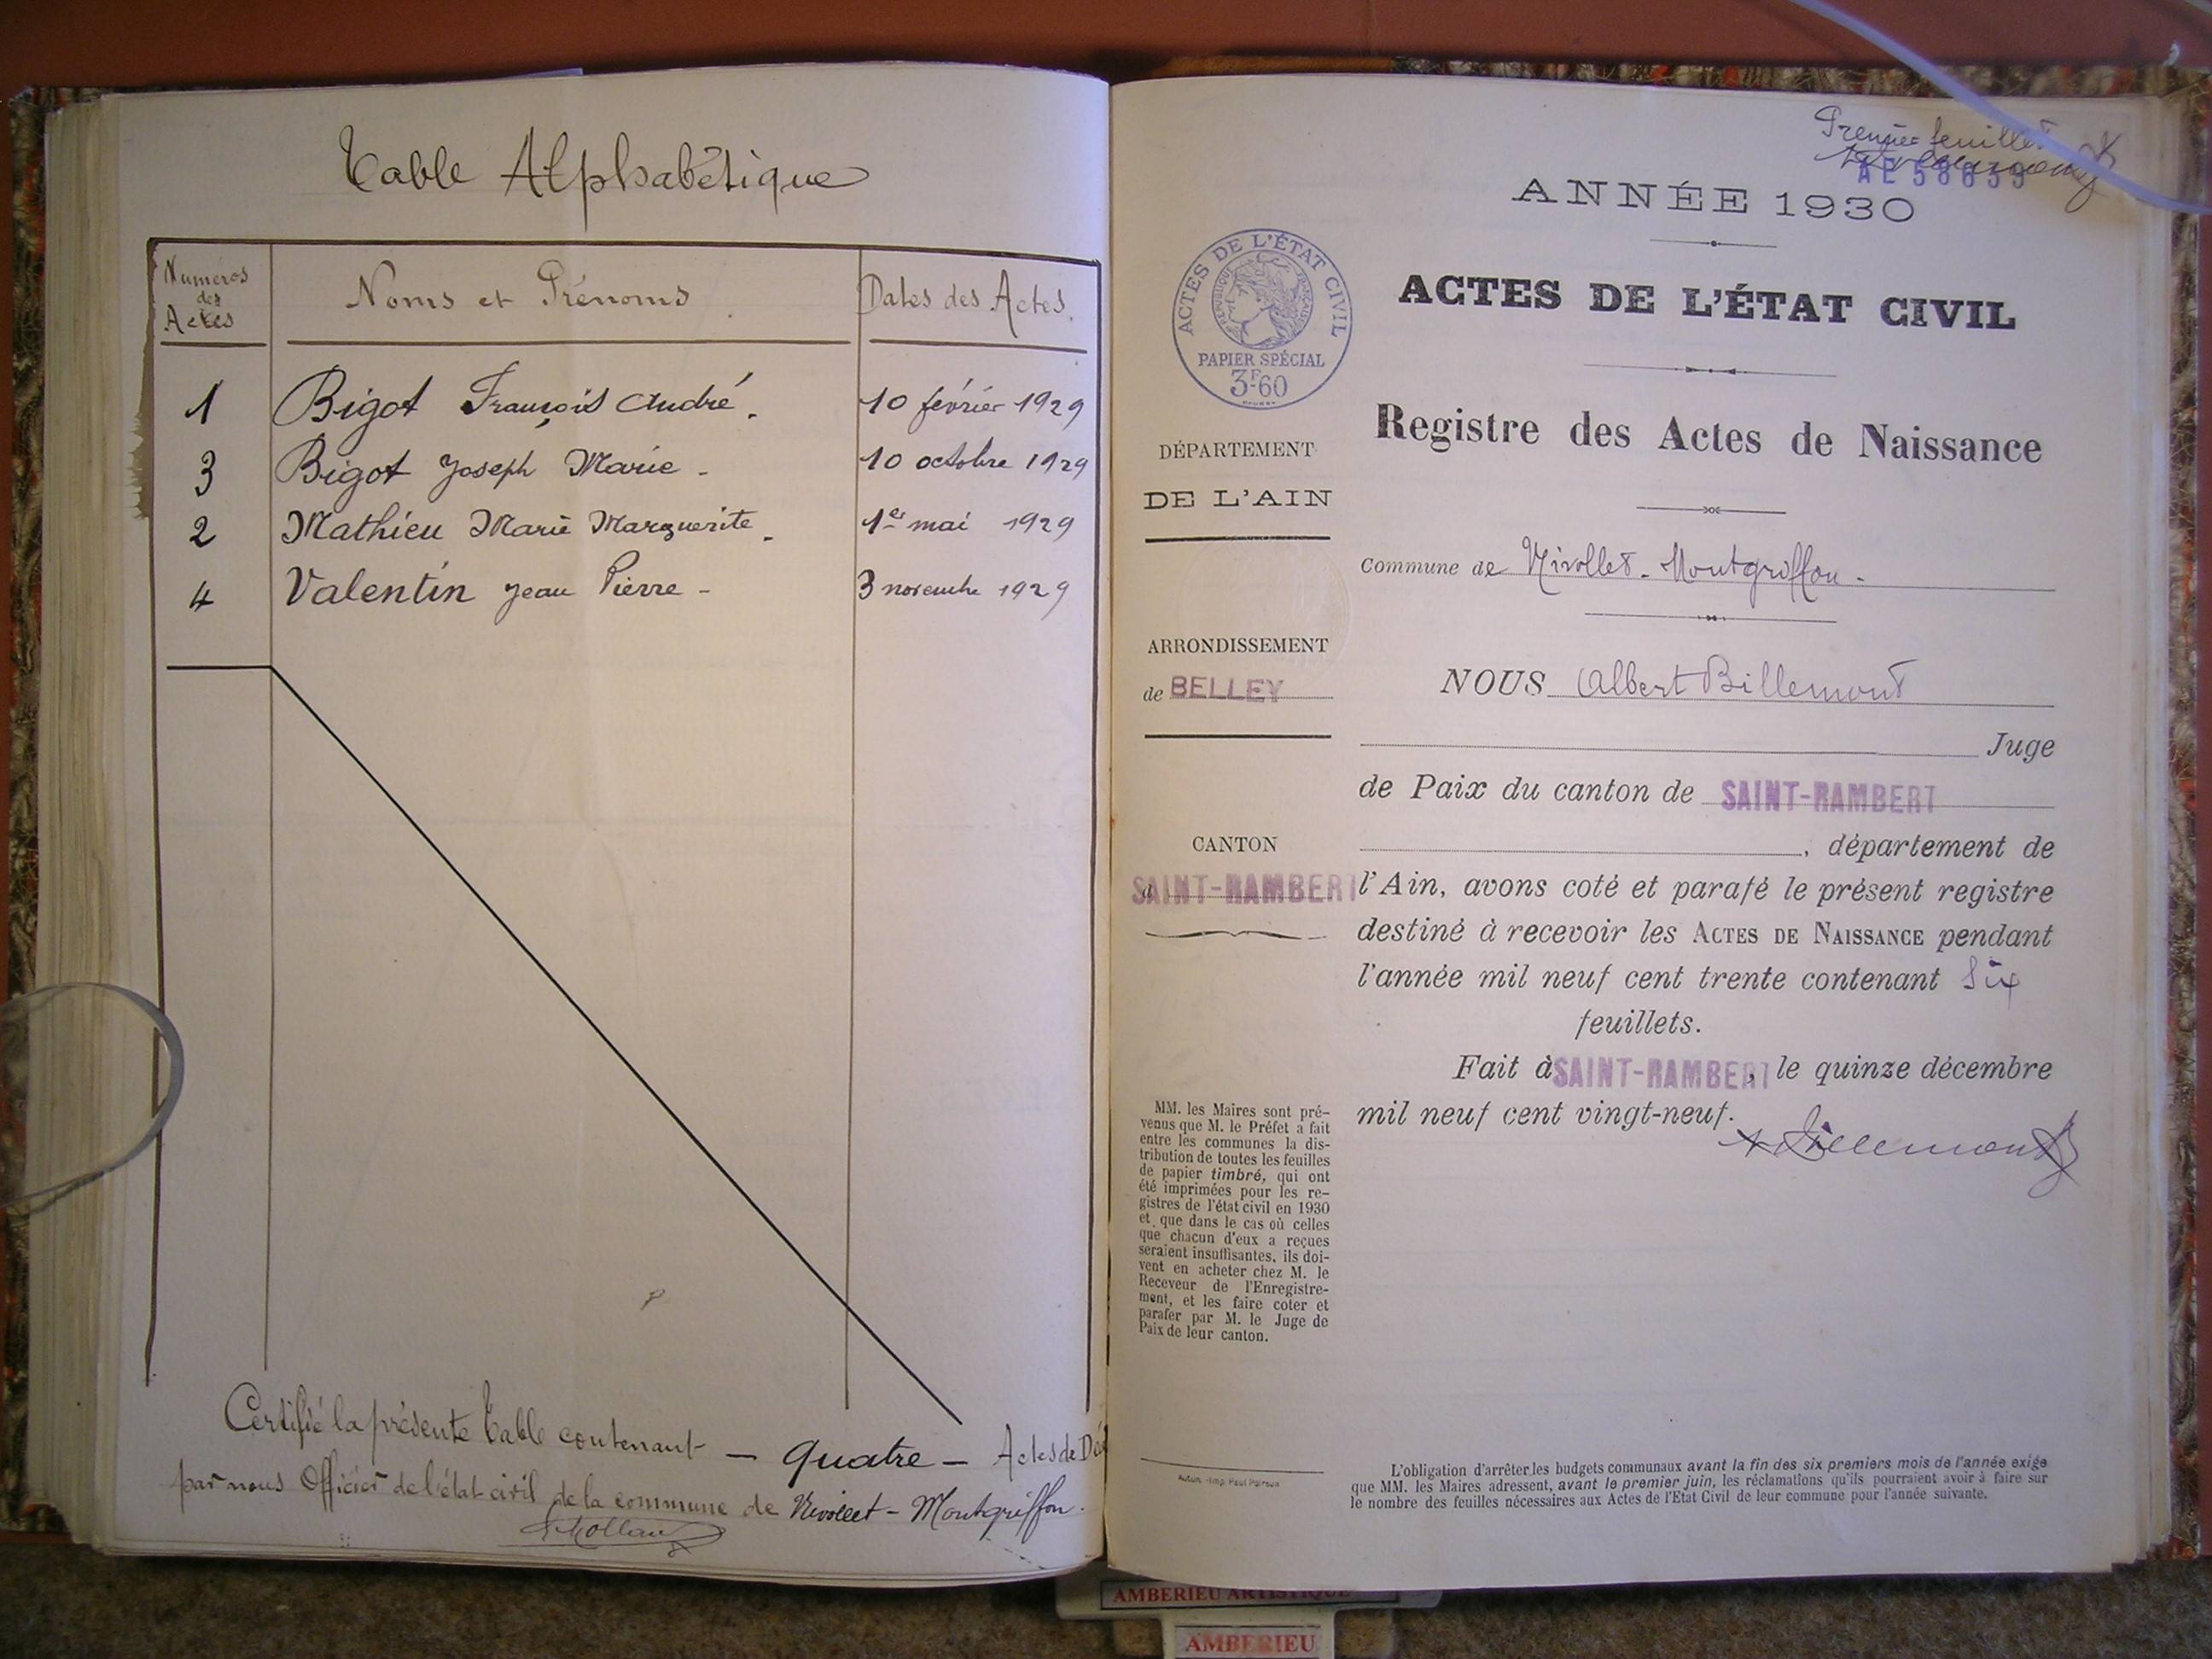 Table Alphabétique
Numéros des Actes
Noms et Prénoms
Dates des Actes.
1 Bigot François André. 10 février 1929
3 Bigot Joseph Marie - 10 octobre 1929
2 Mathieu Marie Marguerite. 1er mai 1929
4 Valentin Jean Pierre - 3 novembre 1929
Certifié la présente Table contenant - quatre - Actes de Déc
par nous Officier de l'état civil de la commune de Nivollet - Montgriffon.
Premier feuillet
ANNÉE 1930
ACTES DE L'ÉTAT CIVIL
RÉPUBLIQUE FRANÇAISE
PAPIER SPÉCIAL
3F60
ACTES DE L'ÉTAT CIVIL
Registre des Actes de Naissance
DÉPARTEMENT
DE L'AIN
Commune de Nivollet-Montgriffon.
ARRONDISSEMENT
de BELLEY
NOUS Albert Billemont
Juge
de Paix du canton de SAINT-RAMBERT
CANTON
d SAINT-RAMBERT
, département de
l'Ain, avons coté et parafé le présent registre
destiné à recevoir les ACTES DE NAISSANCE pendant
l'année mil neuf cent trente contenant Six
feuillets.
Fait à SAINT-RAMBERT, le quinze décembre
mil neuf cent vingt-neuf.
A Billemont
MM. les Maires sont pré-
venus que M. le Préfet a fait
entre les communes la dis-
tribution de toutes les feuilles
de papier timbré, qui ont
été imprimées pour les re-
gistres de l'état civil en 1930
et que dans le cas où celles
que chacun d'eux a reçues
seraient insuffisantes, ils doi-
vent en acheter chez M. le
Receveur de l'Enregistre-
ment, et les faire coter et
parafer par M. le Juge de
Paix de leur canton.
L'obligation d'arrêter les budgets communaux avant la fin des six premiers mois de l'année exige
que MM. les Maires adressent, avant le premier juin, les réclamations qu'ils pourraient avoir à faire sur
le nombre des feuilles nécessaires aux Actes de l'Etat Civil de leur commune pour l'année suivante.
AMBERIEU ARTISTIQUE
AMBERIEU